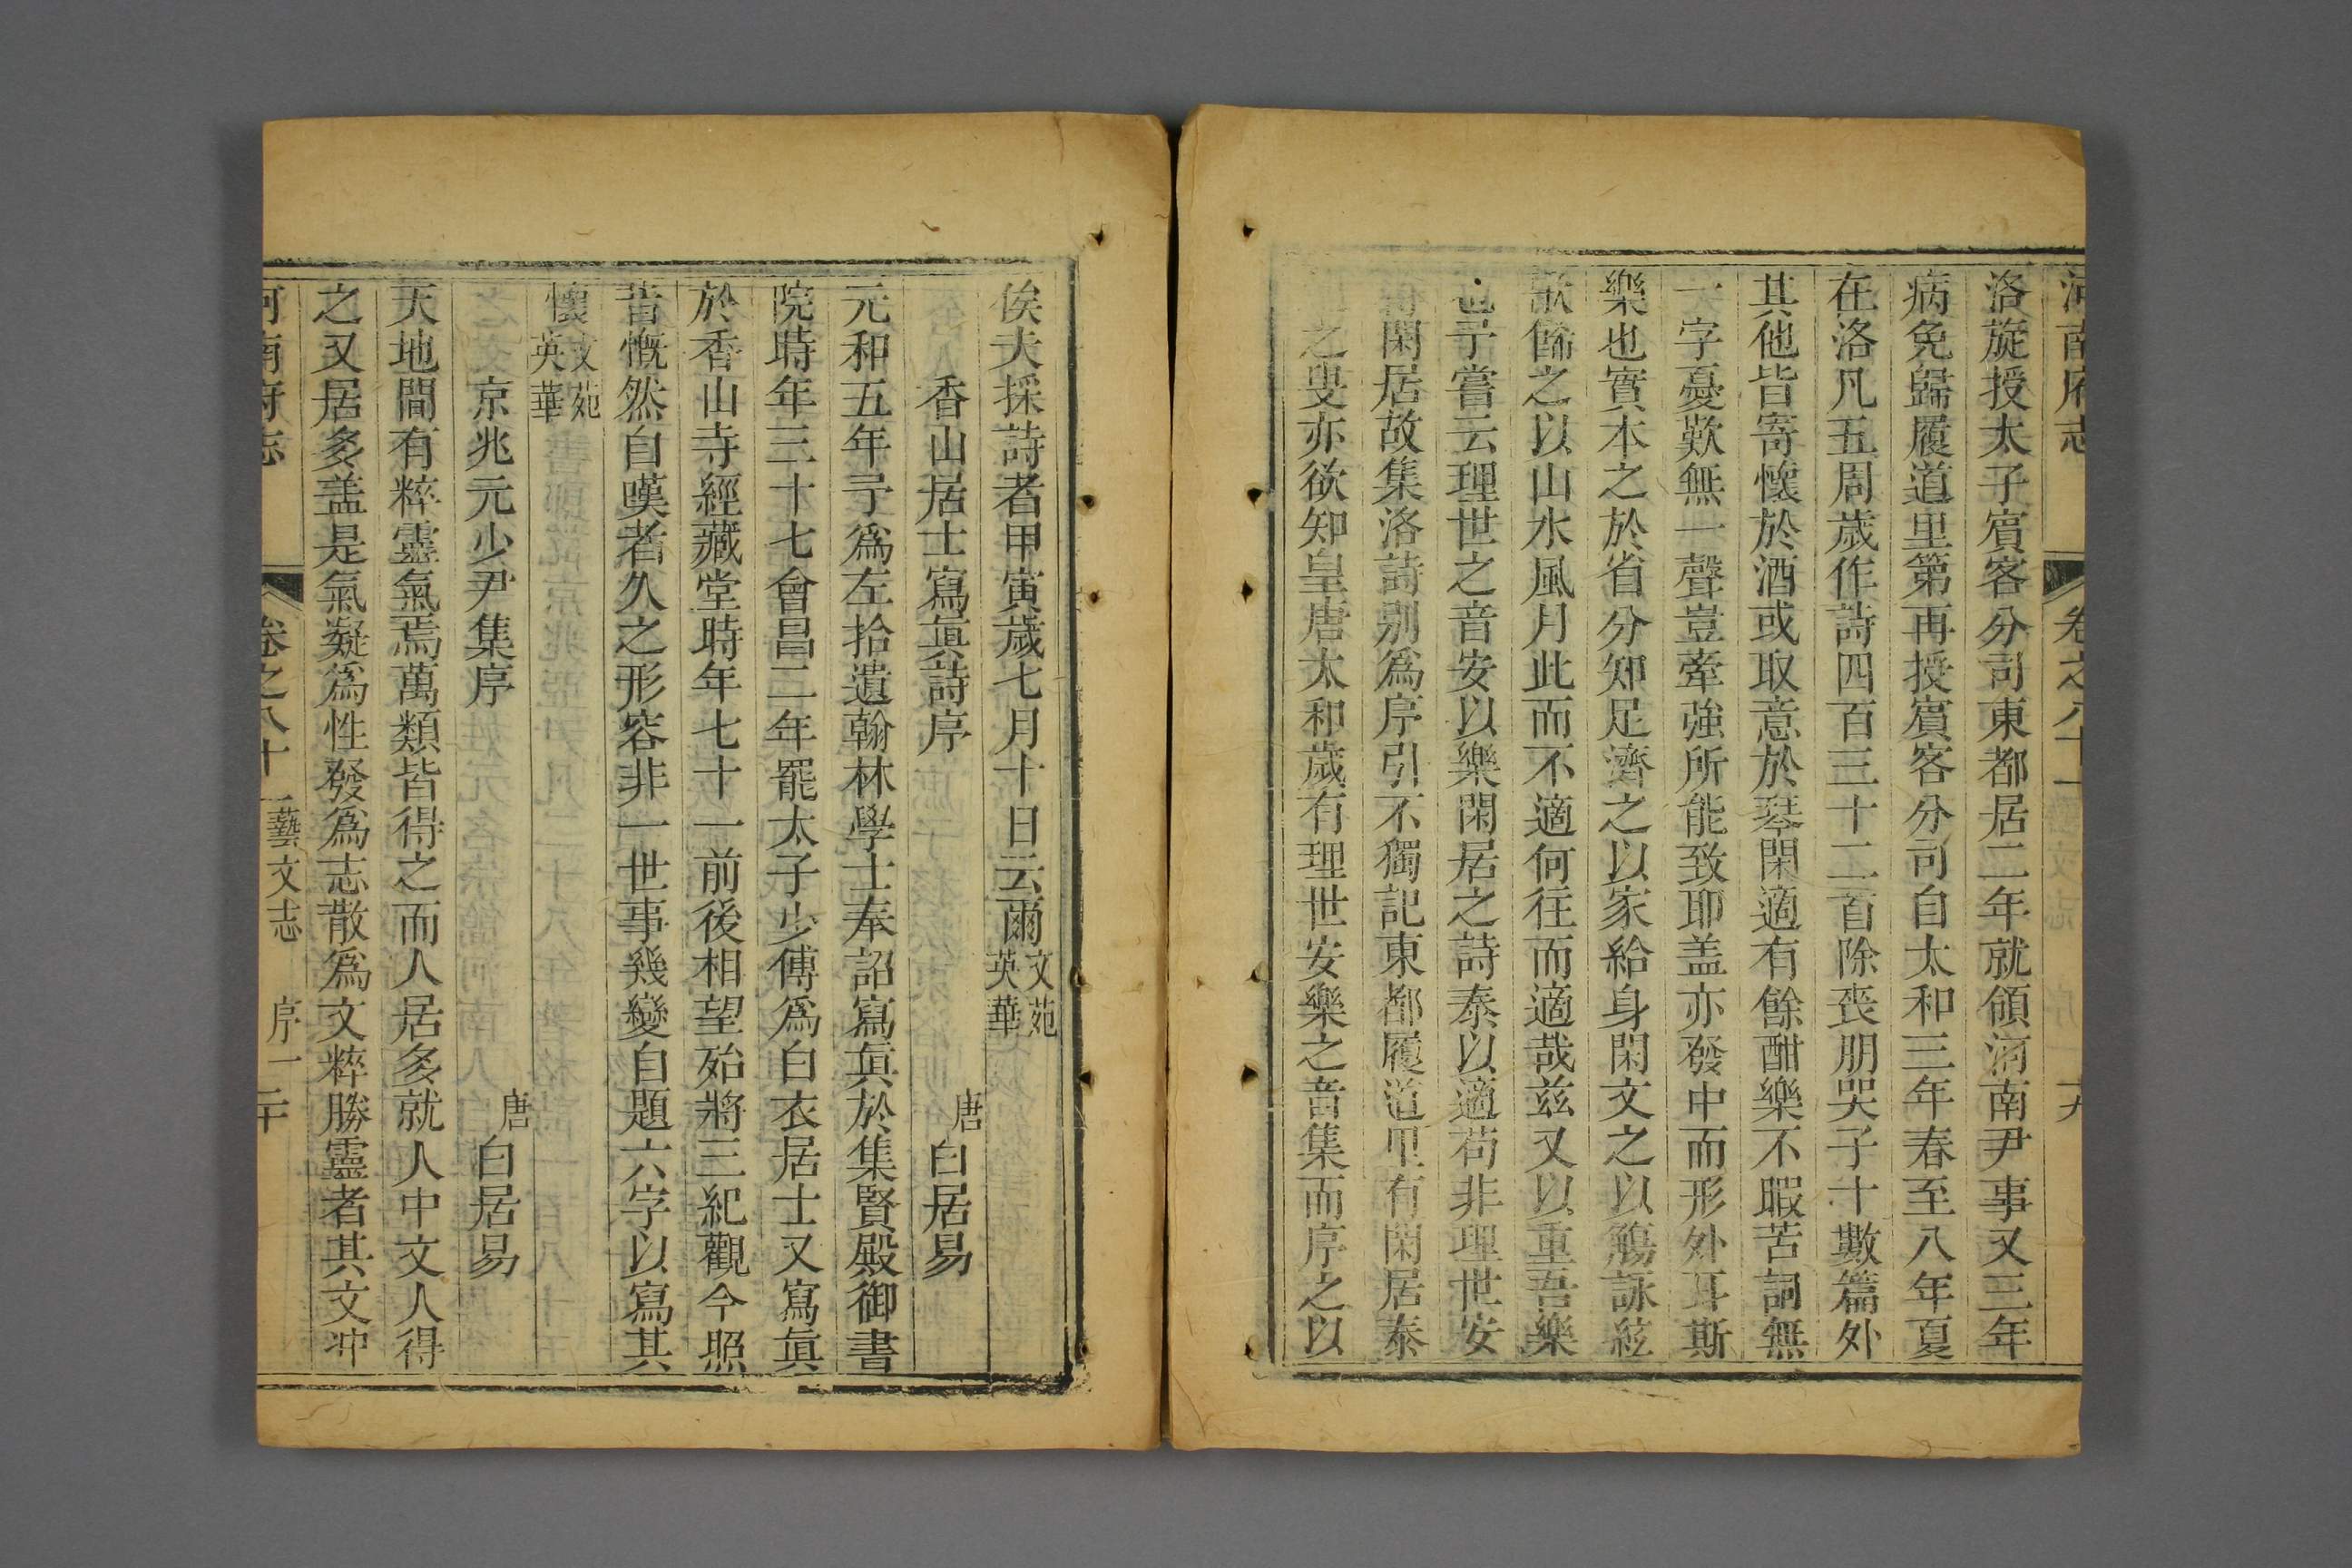 河南府志 卷之八十一 十九
洛旋授太子賓客分司東都居二年就領河南尹事又三年
病免歸履道里第再授賓客分司自太和三年春至八年夏
在洛凡五周歲作詩四百三十二首除喪朋哭子十數篇外
其他皆寄懷於酒或取意於琴閑適有餘酣樂不暇苦詞無
一字憂歎無一聲豈牽強所能致耶盖亦發中而形外耳斯
樂也實本之於省分知足濟之以家給身閑文之以觴詠絃
歌飾之以山水風月此而不適何往而適哉茲又以重吾樂
也予嘗云理世之音安以樂閑居之詩泰以適苟非理世安
得閑居故集洛詩別爲序引不獨記東都履道里有閑居泰
之叟亦欲知皇唐太和歲有理世安樂之音集而序之以
俟夫採詩者甲寅歲七月十日云爾文苑英華
香山居士寫眞詩序 唐白居易
元和五年予爲左拾遺翰林學士奉詔寫眞於集賢殿御書
院時年三十七會昌二年罷太子少傅爲白衣居士又寫眞
於香山寺經藏堂時年七十一前後相望殆將三紀觀今照
昔慨然自嘆者久之形容非一世事幾變自題六字以寫其
懷文苑英華
京兆元少尹集序 唐白居易
天地間有粹靈氣焉萬類皆得之而人居多就人中文人得
之又居多盖是氣凝爲性發爲志散爲文粹勝靈者其文冲
河南府志 卷之八十一藝文志 序一 二十